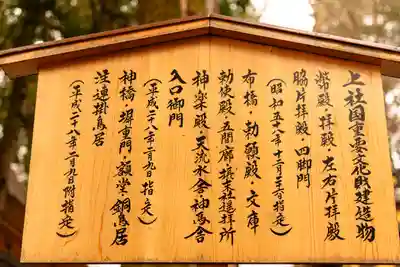 上社国重要文化財建造物
幣殿・拝殿・左右片拝殿
脇片拝殿 四脚門
（昭和五十八年十二月二十六日指定）
布橋・勅願殿・文庫
勅使殿・五間廊・摂末社遥拝所
神楽殿・天流水舎・神馬舎
入口御門
（平成二十八年二月九日指定）
神橋・塀重門・額堂・銅鳥居
注連掛鳥居
（平成二十八年二月九日附指定）